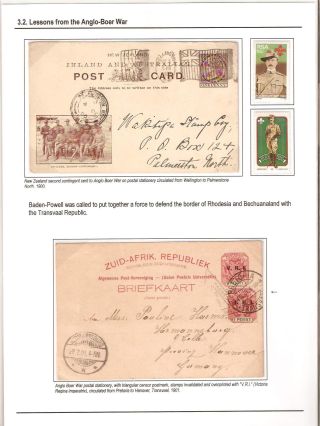 3.2. Lessons from the Anglo-Boer War
NEW ZEALAND
INLAND AND AUSTRALIAN
POST CARD
RSA
Wakatipu Stamp Coy,
P. O. Box 124,
Palmerston North.
New Zealand second contingent sent to Anglo Boer War on postal stationery circulated from Wellington to Palmerstone
North. 1900.
Baden-Powell was called to put together a force to defend the border of Rhodesia and Bechuanaland with
the Transvaal Republic.
ZUID-AFRIK. REPUBLIEK
Algemeene Post-Vereeniging — (Union Postale Universelle)
BRIEFKAART
V. R. I.
An Mrs. Pauline Harms
Hermannsburg
Celle
Provinz Hannover
Germany
Anglo Boer War postal stationery, with triangular censor postmark, stamps invalidated and overprinted with "V.R.I." (Victoria
Regina Imperatrix), circulated from Pretoria to Hanover, Transvaal, 1901.